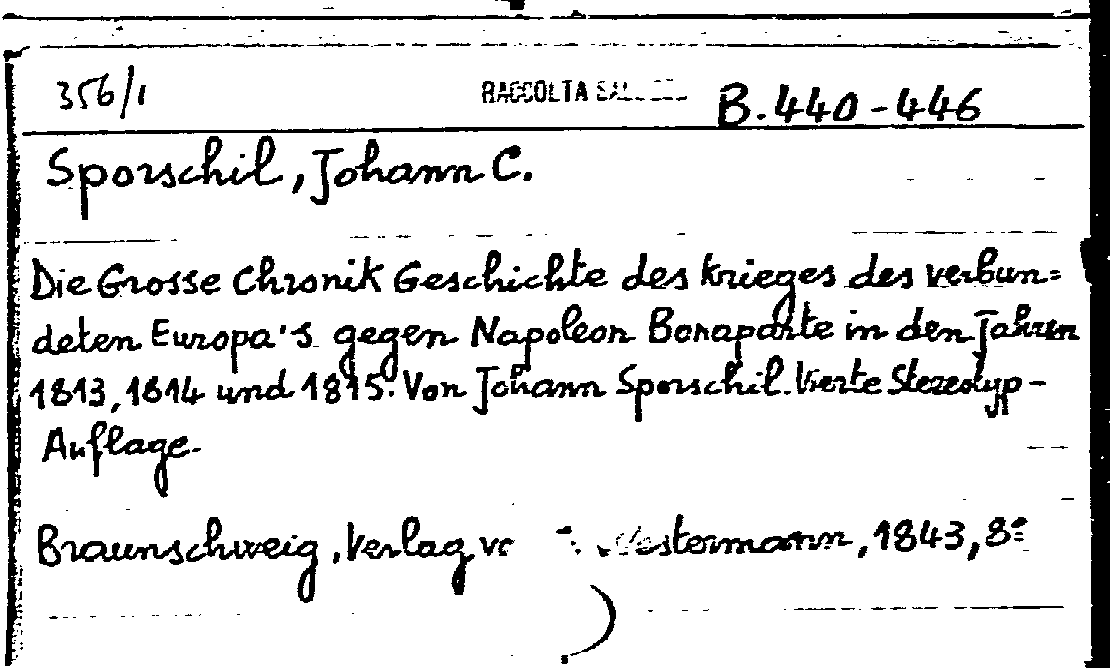 356/1 RACCOLTA B.440-446
Sporschil, Johann C.
Die Grosse Chronik Geschichte des krieges des verbun=
deten Europa's gegen Napoleon Bonaparte in den Jahren
1813, 1814 und 1815. Von Johann Sporschil. Vierte Stereotyp-
Auflage.
Braunschweig, Verlag Westermann, 1843, 8°